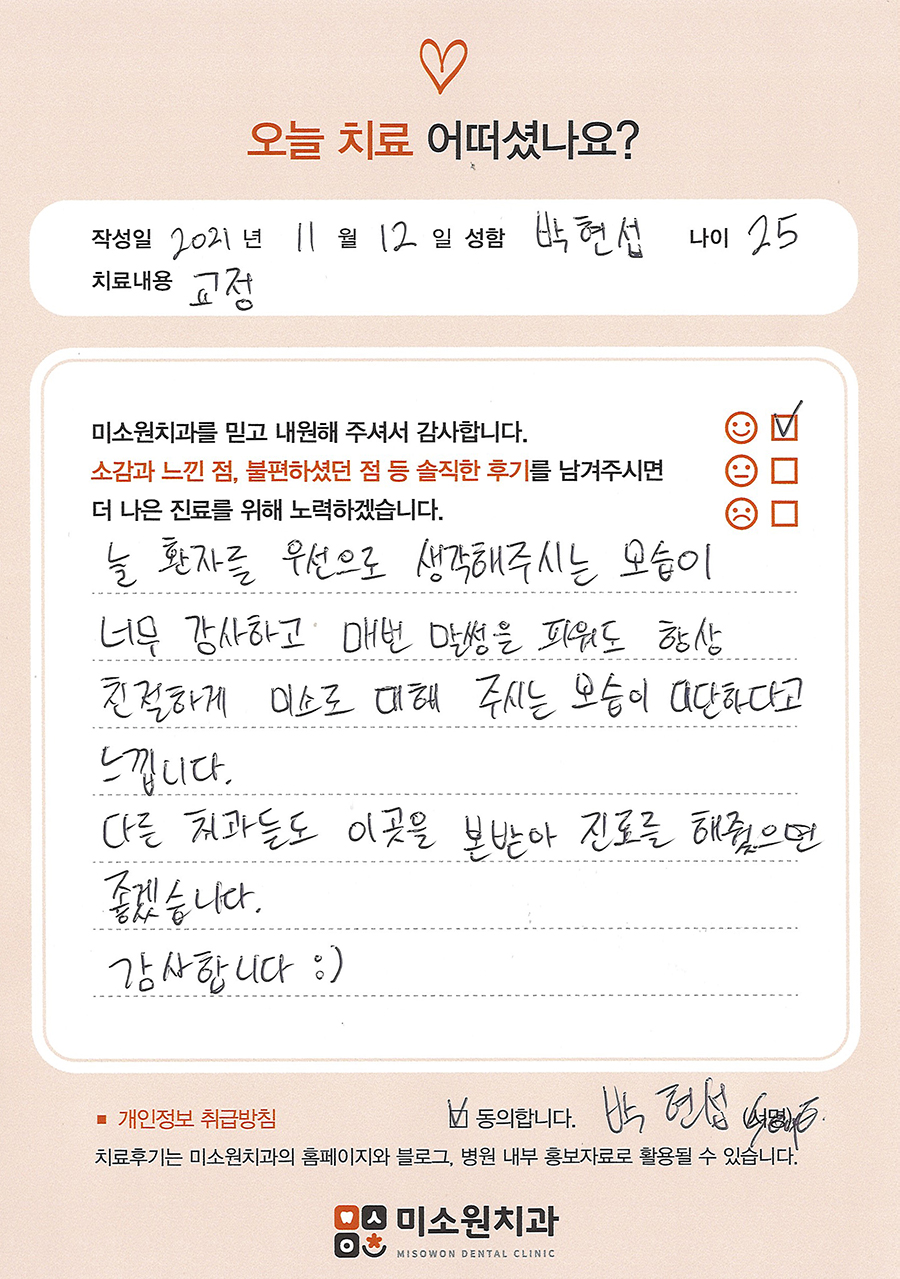 오늘 치료 어떠셨나요?
작성일 2021 년 11 월 12 일 성함 박현섭 나이 25
치료내용 교정
미소원치과를 믿고 내원해 주셔서 감사합니다.
소감과 느낀 점, 불편하셨던 점 등 솔직한 후기를 남겨주시면
더 나은 진료를 위해 노력하겠습니다.
늘 환자를 우선으로 생각해주시는 모습이
너무 감사하고 매번 말썽을 피워도 항상
친절하게 미소로 대해 주시는 모습이 대단하다고
느낍니다.
다른 치과들도 이곳을 본받아 진료를 해줬으면
좋겠습니다.
감사합니다 :)
■ 개인정보 취급방침 동의합니다. 박현섭 (서명)
치료후기는 미소원치과의 홈페이지와 블로그, 병원 내부 홍보자료로 활용될 수 있습니다.
미소원치과
MISOWON DENTAL CLINIC